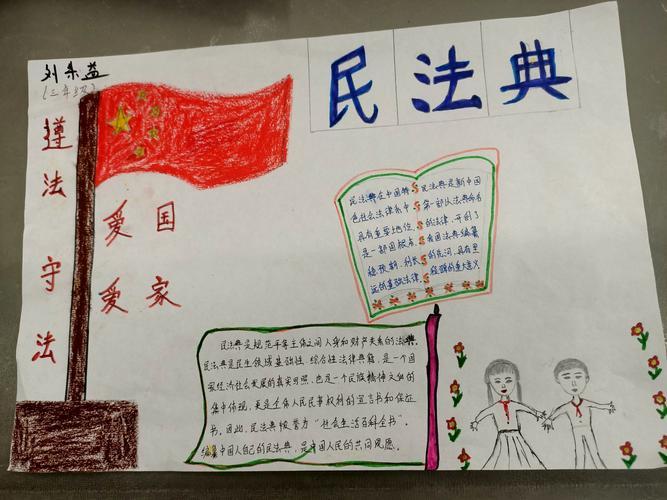 刘
益
(三年级)
民法典
遵法守法
爱国
爱家
民法典在中国特
色社会法律系中
具有重要地位,
是一部固根本,
稳预期,利长
远的基础法律,
民法典是新中国
第一部以法典命名
的法律,开创了
我国法典编纂
的先河,具有里
程碑的重大意义
民法典是规范平等主体之间人身和财产关系的法典,
民法典是民生领域基础性、综合性法律典籍,是一个国
家经济社会发展的真实写照,也是一个民族精神文化的
集中体现,更是全体人民民事权利的宣言书和保证
书。因此,民法典被誉为“社会生活百科全书”。
编纂中国人自己的民法典,是中国人民的共同夙愿。